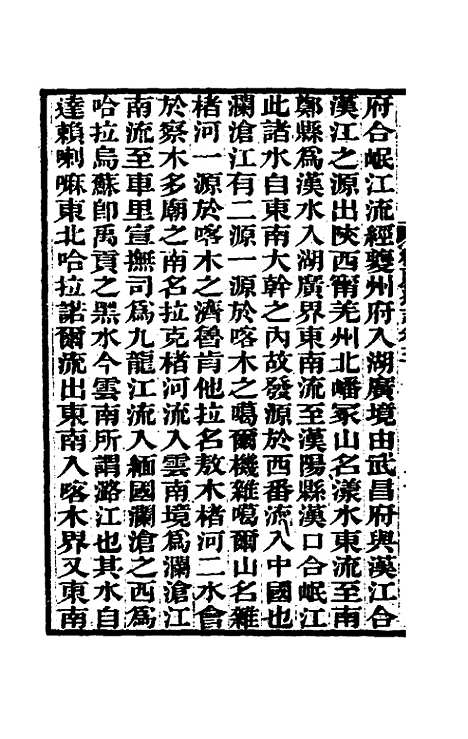 府合岷江流經夔州府入湖廣境由武昌府與漢江合
漢江之源出陝西甯羌州北嶓冢山名漾水東流至南
鄭縣為漢水入湖廣界東南流至漢陽縣漢口合岷江
此諸水自東南大幹之內故發源於西番流入中國也
瀾滄江有二源一源於喀木之噶爾機雜噶爾山名雜
楮河一源於喀木之濟魯肯他拉名敖木楮河二水會
於察木多廟之南名拉克楮河流入雲南境為瀾滄江
南流至車里宣撫司為九龍江流入緬國瀾滄之西為
哈拉烏蘇卽禹貢之黑水今雲南所謂潞江也其水自
達賴喇嘛東北哈拉諾爾流出東南入喀木界又東南